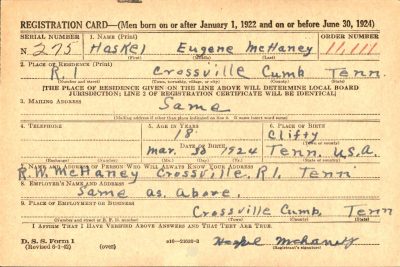 REGISTRATION CARD—(Men born on or after January 1, 1922 and on or before June 30, 1924)
SERIAL NUMBER 1. NAME (Print) ORDER NUMBER
N 275 Haskel Eugene McHaney 11,111
(First) (Middle) (Last)
2. PLACE OF RESIDENCE (Print)
R.1 Crossville Cumb. Tenn.
(Number and street) (Town, township, village, or city) (County) (State)
[THE PLACE OF RESIDENCE GIVEN ON THE LINE ABOVE WILL DETERMINE LOCAL BOARD
JURISDICTION; LINE 2 OF REGISTRATION CERTIFICATE WILL BE IDENTICAL]
3. MAILING ADDRESS
Same
(Mailing address if other than place indicated on line 2. If same insert word same)
4. TELEPHONE 5. AGE IN YEARS 6. PLACE OF BIRTH
18 Clifty
DATE OF BIRTH (Town or county)
Mar. 1924 Tenn. U.S.A.
(Exchange) (Number) (Mo.) (Day) (Yr.) (State or country)
7. NAME AND ADDRESS OF PERSON WHO WILL ALWAYS KNOW YOUR ADDRESS
R.W. McHaney Crossville. R1. Tenn
8. EMPLOYER'S NAME AND ADDRESS
Same as above.
9. PLACE OF EMPLOYMENT OR BUSINESS
Crossville Cumb. Tenn
(Number and street or R. F. D. number) (Town) (County) (State)
I AFFIRM THAT I HAVE VERIFIED ABOVE ANSWERS AND THAT THEY ARE TRUE.
D. S. S. Form 1
(Revised 6-9-42) (over) Haskel McHaney
(Registrant's signature)